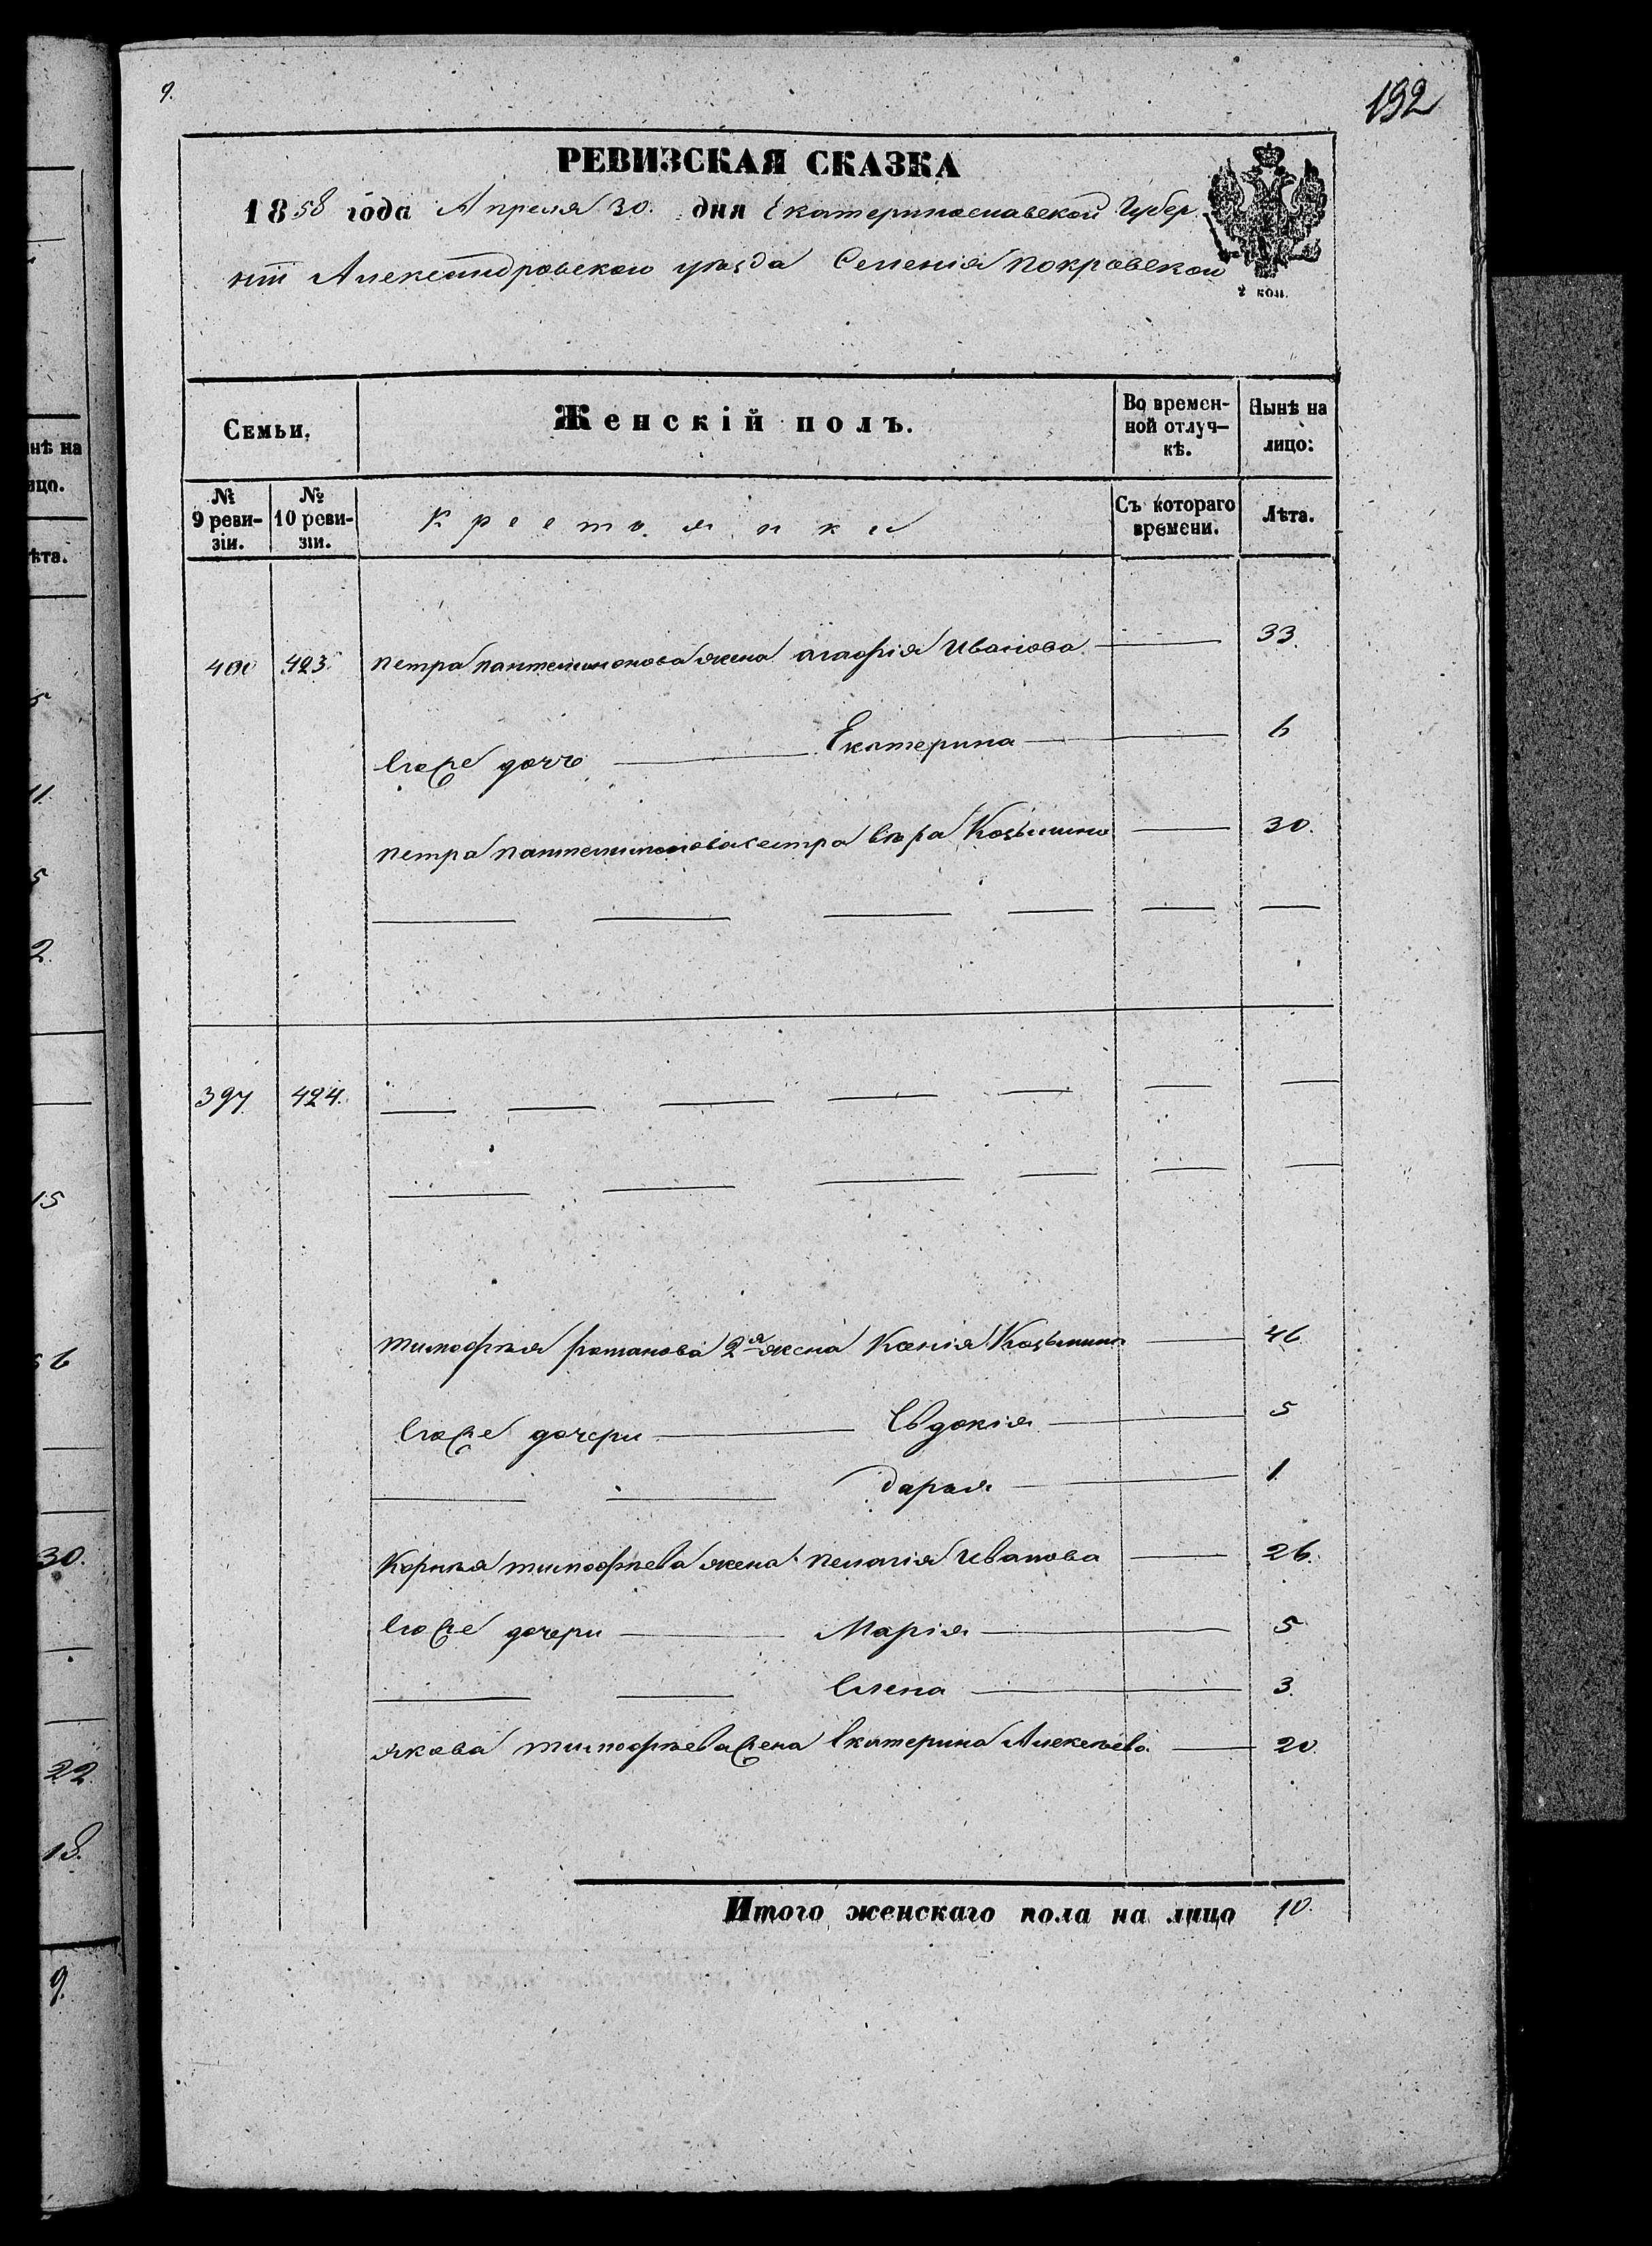 9.
192
РЕВИЗСКАЯ СКАЗКА
1858 года Апреля 30. дня Екатеринославской Губер
ніи Александровскаго уѣзда Селенія покровскаго
2 коп.
Семьи. Женскій полъ. Во времен- Нынѣ на
ной отлуч- лицо:
кѣ.
№ № Крестьянки Съ котораго Лѣта.
9 реви- 10 реви- времени.
зіи. зіи.
400 423. петра пантелимонова жена агафія Иванова 33.
Его же дочь Екатерина 6
петра пантелимонова сестра вѣра Козьмина 30.
397 424.
тимофѣя романова 2я жена Ксенія Козьмина 46.
Его же дочери Евдокія 5
дарья 1.
Корнѣя тимофѣева жена пелагія Иванова 26.
Его же дочери Марія 5
Елена 3.
якова тимофѣева жена Екатерина Алексѣева 20.
Итого женскаго пола на лицо 10.
нѣ на
ицо.
ѣта.
5
11.
5
2.
15
56
30.
22.
18.
9.